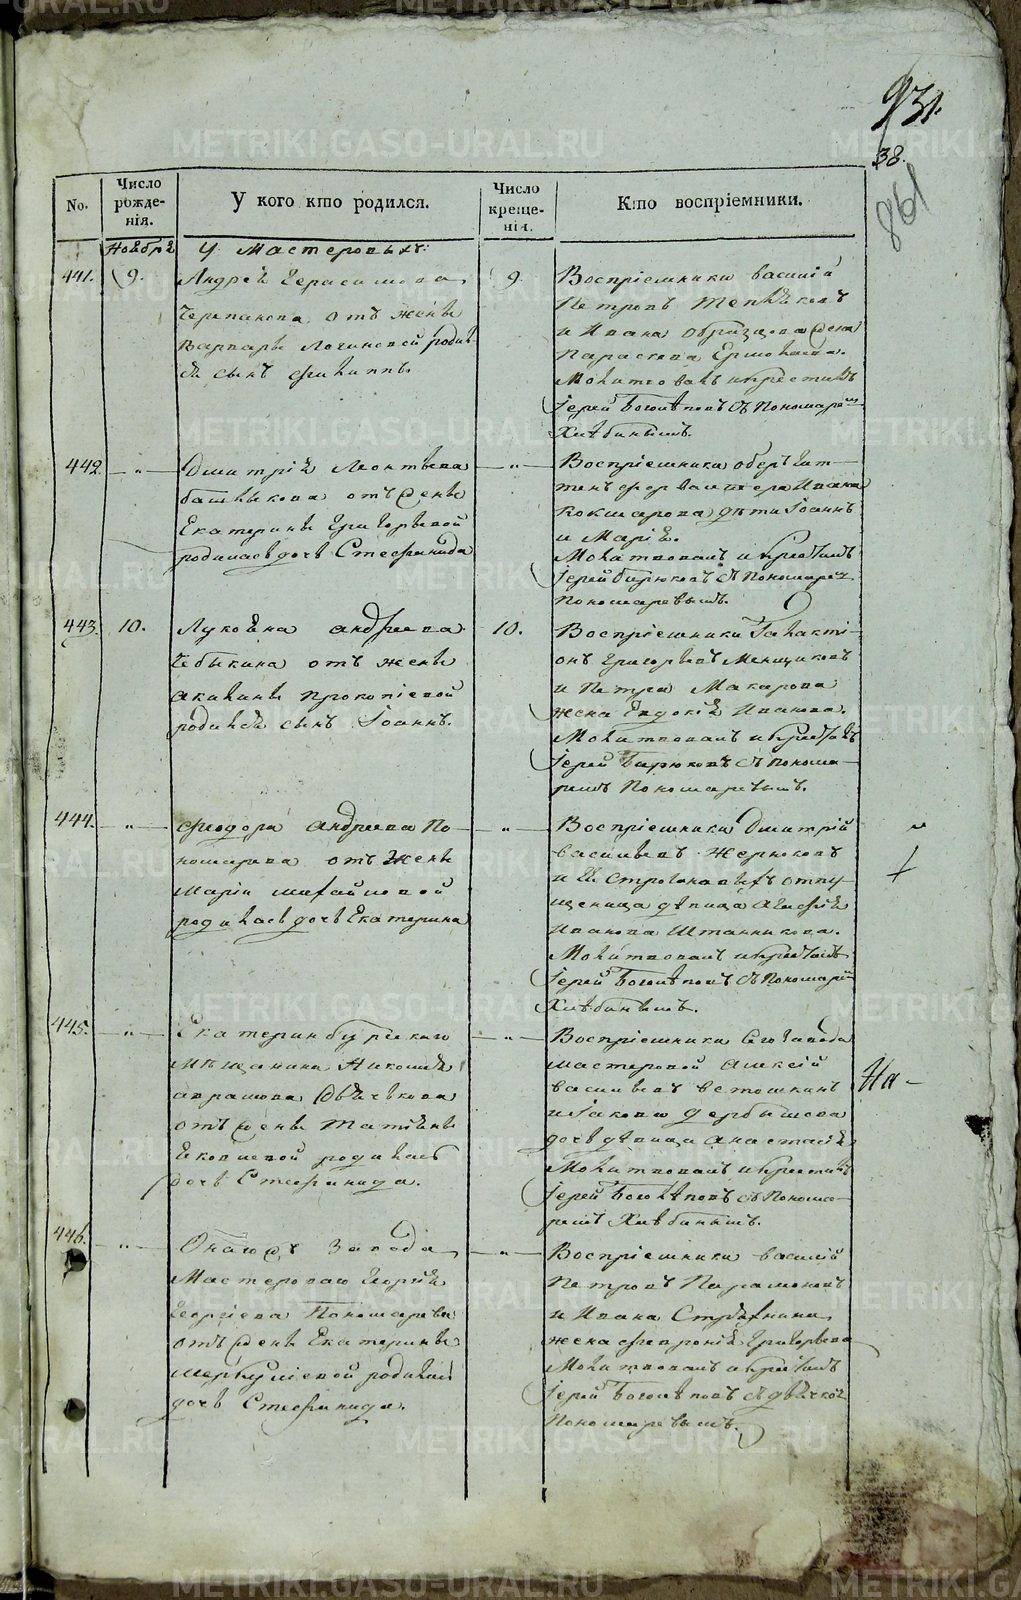 931.
38.
861
No.
Число рожде-нія.
У кого кто родился.
Число креще-нія.
Кто воспріемники.
Ноября
У Мастеровыхъ:
441. 9.
Андрея Герасимова
Черепанова отъ жены
Варвары Логиновой родил-
ся сынъ Филиппъ
9
Воспріемники Василій
Петровъ
и Ивана Образцова жена
Параскева Ермолаева.
Молитвовалъ и крестилъ
Іерей Боголѣповъ съ Пономаремъ
Хлѣбинымъ.
442. — „ —
Дмитрія Леонтьева
Башлыкова отъ жены
Екатерины Григорьевой
родилась дочь Стефанида
— „ —
Воспріемники оберъ Гит-
тенъ фервалтера Ивана
Кокшарова дѣти Іоаннъ
и Марія.
Молитвовалъ и крестилъ
Іерей Бирюковъ съ Пономаремъ
Пономаревымъ.
443. 10.
Лукояна Андреева
Чебыкина отъ жены
Акилины Прокопіевой
родился сынъ Іоаннъ.
10.
Воспріемники Галакті-
онъ Григорьевъ Менщиковъ
и Петра Макарова
жена Евдокія Иванова.
Молитвовалъ и крестилъ
Іерей Бирюковъ съ Понома-
ремъ Пономаревымъ.
444. — „ —
Феодора Андреева По-
номарева отъ жены
Маріи Михайловой
родилась дочь Екатерина
— „ —
Воспріемники Дмитрій
Васильевъ
и Строгановыхъ отпу-
щеница дѣвица
Иванова Штанникова.
Молитвовалъ и крестилъ
Іерей Боголѣповъ съ Пономаремъ
Хлѣбинымъ.
445. — „ —
Екатеринбургскаго
Мѣщанина Николая
Аврамова
отъ жены Татіаны
Яковлевой родилась
дочь Стефанида.
— „ —
Воспріемники Сего завода
мастеровой Алексій
Васильевъ Ветошкинъ
и Іакова Дербышева
дочь дѣвица Анастасія
Молитвовалъ и крестилъ
Іерей Боголѣповъ съ Понома-
ремъ Хлѣбинымъ.
На-
446. — „ —
Онагожъ Завода
Мастероваго Георгія
Георгіева Пономарева
отъ жены Екатерины
Меркуріевой родилась
дочь Стефанида.
— „ —
Воспріемники Василій
Петровъ Парамоновъ
и Ивана
жена Февронія Григорьева
Молитвовалъ и крестилъ
Іерей Боголѣповъ съ дьячкомъ
Пономаревымъ.
METRIKI.GASO-URAL.RU